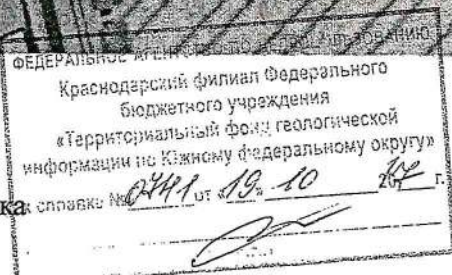 ФЕДЕРАЛЬНОЕ АГЕНТСТВО ПО НЕДРОПОЛЬЗОВАНИЮ
Краснодарский филиал Федерального
бюджетного учреждения
«Территориальный фонд геологической
информации по Южному федеральному округу»
ка к справке № 0741 от «19» 10 2017 г.